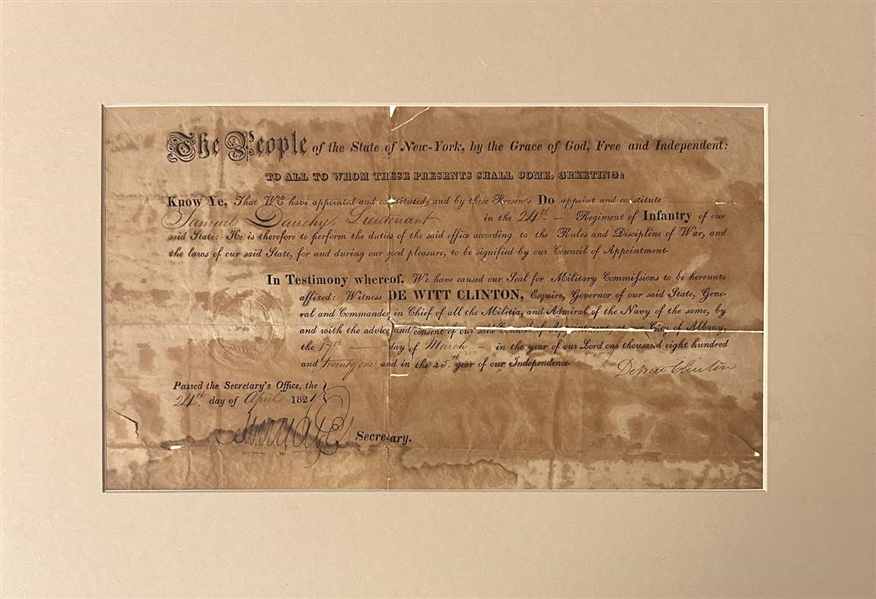 The People of the State of New-York, by the Grace of God, Free and Independent:
TO ALL TO WHOM THESE PRESENTS SHALL COME, GREETING:
Know Ye, That WE have appointed and constituted, and by these Presents Do appoint and constitute
Samuel Dauchy, Lieutenant in the 24th Regiment of Infantry of our
said State: He is therefore to perform the duties of the said office according to the Rules and Discipline of War, and
the laws of our said State, for and during our good pleasure, to be signified by our Council of Appointment.
In Testimony whereof, We have caused our Seal for Military Commissions to be hereunto
affixed: Witness DE WITT CLINTON, Esquire, Governor of our said State, Gene-
ral and Commander in Chief of all the Militia, and Admiral of the Navy of the same, by
and with the advice and consent of our said Council of Appointment, at our City of Albany,
the 17th day of March in the year of our Lord one thousand eight hundred
and twenty one and in the 45th year of our Independence.
DeWitt Clinton
Passed the Secretary's Office, the
24th day of April 1821
Secretary.